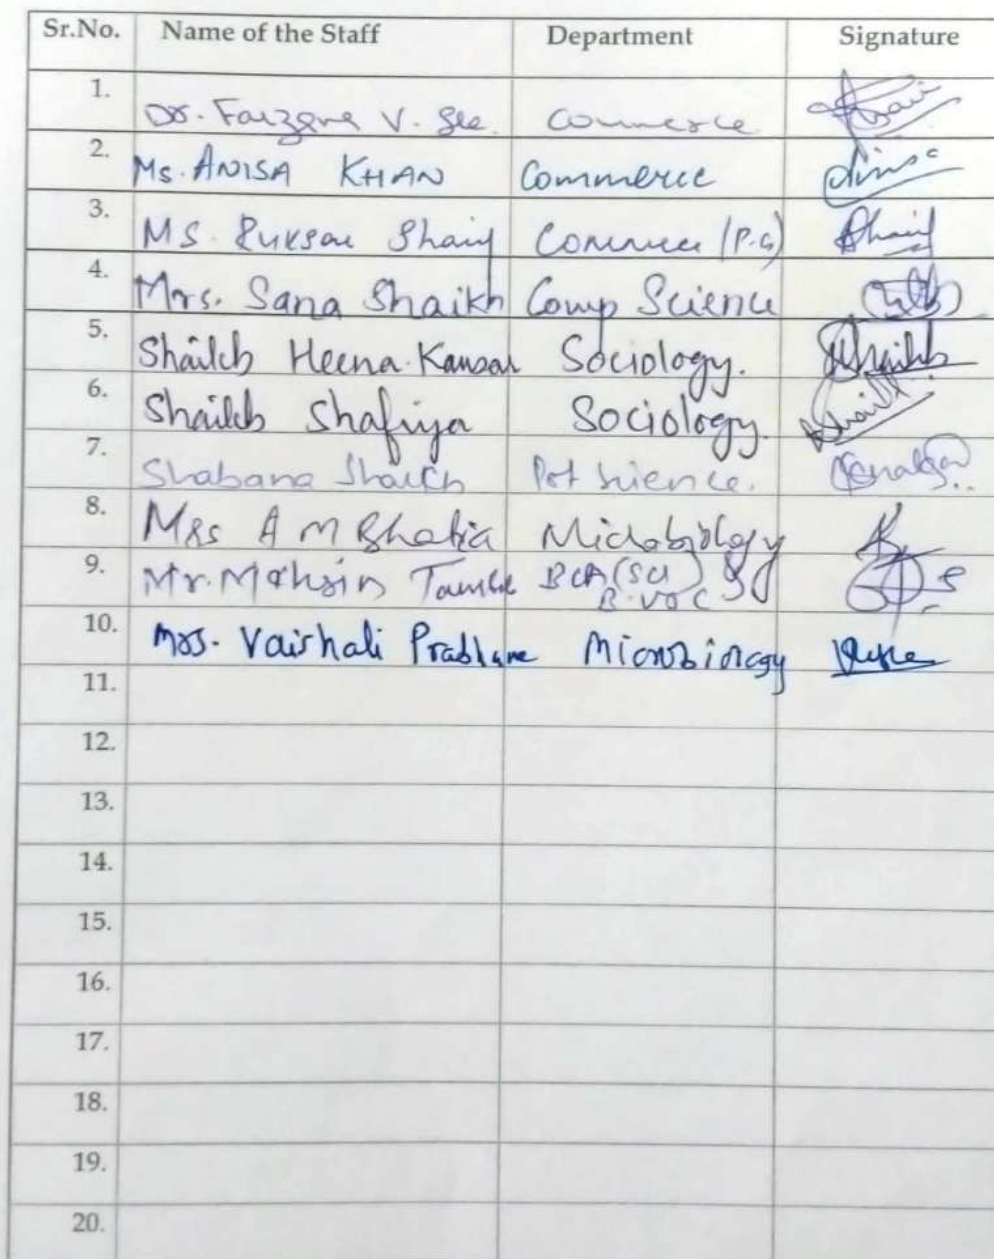 Sr.No. Name of the Staff Department Signature
1. Dr. Farzana V. See. Commerce
2. Ms. ANISA KHAN Commerce
3. MS. Ruksar Shaikh Commerce (P.G)
4. Mrs. Sana Shaikh Comp Science
5. Shaikh Heena Kausar Sociology. Shaikh
6. Shaikh Shafiya Sociology. Shaikh
7. Shabana Shaikh Pol Science.
8. Mrs A M Bhatia Microbiology
9. Mr. Mohsin Tambe BCA (Sci)
B.VOC
10. Mrs. Vaishali Microbiology
11.
12.
13.
14.
15.
16.
17.
18.
19.
20.